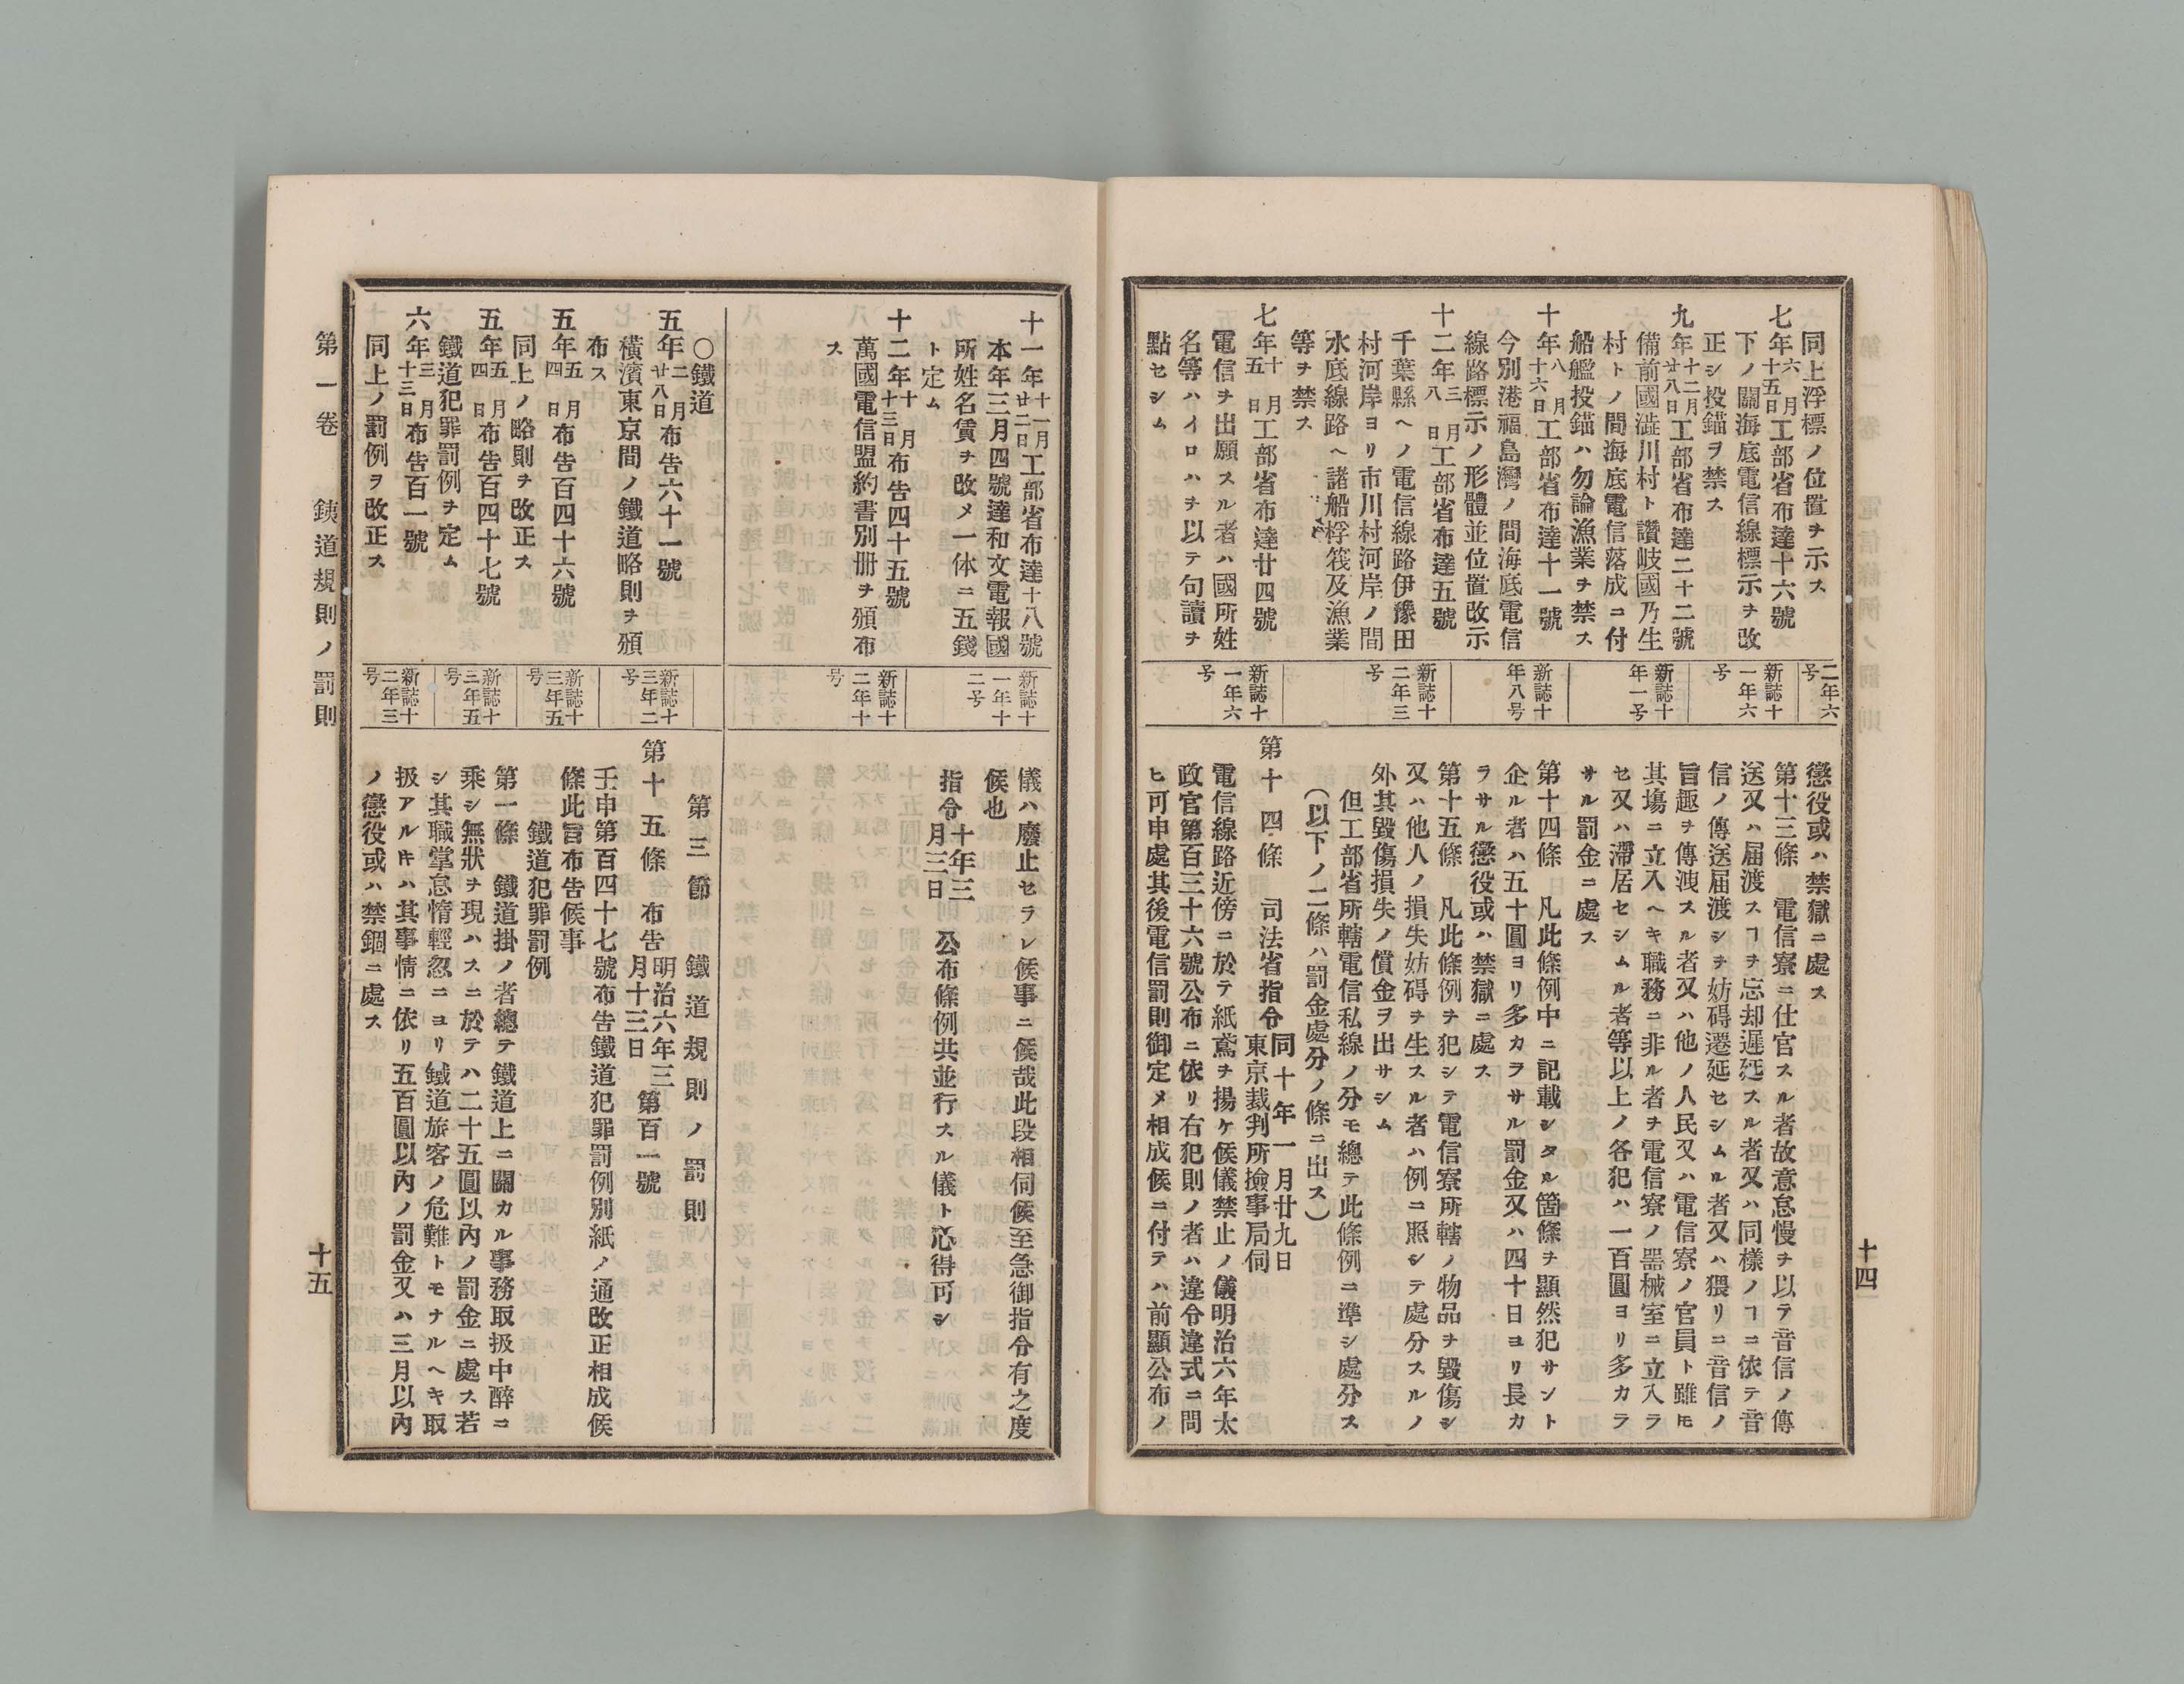 同上浮標ノ位置ヲ示ス
七年六月十五日工部省布達十六號
下ノ關海底電信線標示ヲ改
正シ投錨ヲ禁ス
九年十二月廿八日工部省布達二十二號
備前國澁川村ト讚岐國乃生
村トノ間海底電信落成ニ付
船艦投錨ハ勿論漁業ヲ禁ス
十年八月十六日工部省布達十一號
今別港福島灣ノ間海底電信
線路標示ノ形體並位置改示
十二年三月八日工部省布達五號
千葉縣ヘノ電信線路伊豫田
村河岸ヨリ市川村河岸ノ間
水底線路ヘ諸船桴筏及漁業
等ヲ禁ス
七年十月五日工部省布達廿四號
電信ヲ出願スル者ハ國所姓
名等ハイロハヲ以テ句讀ヲ
點セシム
二年六号
新誌十一年六号
新誌十年一号
新誌十年八号
新誌十二年三号
新誌十一年六号
懲役或ハ禁獄ニ處ス
第十三條 電信寮ニ仕官スル者故意怠慢ヲ以テ音信ノ傳
送又ハ届渡スヿヲ忘却遲延スル者又ハ同樣ノヿニ依テ音
信ノ傳送届渡シヲ妨碍遷延セシムル者又ハ猥リニ音信ノ
旨趣ヲ傳洩スル者又ハ他ノ人民又ハ電信寮ノ官員ト雖𪜈
其塲ニ立入ヘキ職務ニ非ル者ヲ電信寮ノ噐械室ニ立入ラ
セ又ハ滯居セシムル者等以上ノ各犯ハ一百圓ヨリ多カラ
サル罰金ニ處ス
第十四條 凡此條例中ニ記載シタル箇條ヲ顯然犯サント
企ル者ハ五十圓ヨリ多カラサル罰金又ハ四十日ヨリ長カ
ラサル懲役或ハ禁獄ニ處ス
第十五條 凡此條例ヲ犯シテ電信寮所轄ノ物品ヲ毀傷シ
又ハ他人ノ損失妨碍ヲ生スル者ハ例ニ照シテ處分スルノ
外其毀傷損失ノ償金ヲ出サシム
但工部省所轄電信私線ノ分モ總テ此條例ニ準シ處分ス
（以下ノ二條ハ罰金處分ノ條ニ出ス）
第十四條 司法省指令同十年一月廿九日東京裁判所撿事局伺
電信線路近傍ニ於テ紙鳶ヲ揚ケ候儀禁止ノ儀明治六年太
政官第百三十六號公布ニ依リ右犯則ノ者ハ違令違式ニ問
ヒ可申處其後電信罰則御定メ相成候ニ付テハ前顯公布ノ
十四
十一年十一月廿二日工部省布達十八號
本年三月四號達和文電報國
所姓名賃ヲ改メ一体ニ五錢
ト定ム
十二年十月十三日布告四十五號
萬國電信盟約書別册ヲ頒布
ス
○鐵道
五年二月廿八日布告六十一號
橫濱東京間ノ鐵道略則ヲ頒
布ス
五年五月四日布告百四十六號
同上ノ略則ヲ改正ス
五年五月四日布告百四十七號
鐵道犯罪罰例ヲ定ム
六年三月十三日布告百一號
同上ノ罰例ヲ改正ス
新誌十一年十二号
新誌十二年十号
新誌十三年二号
新誌十三年五号
新誌十三年五号
新誌十二年三号
儀ハ廢止セラレ候事ニ候哉此段相伺候至急御指令有之度
候也
指令十年三月三日 公布條例共並行スル儀ト心得可シ
第三節 鐵道規則ノ罰則
第十五條 布告明治六年三月十三日第百一號
壬申第百四十七號布告鐵道犯罪罰例別紙ノ通改正相成候
條此旨布告候事
鐵道犯罪罰例
第一條 鐵道掛ノ者總テ鐵道上ニ關カル事務取扱中醉ニ
乘シ無狀ヲ現ハスニ於テハ二十五圓以內ノ罰金ニ處ス若
シ其職掌怠惰輕忽ニヨリ鐵道旅客ノ危難トモナルヘキ取
扱アル𪜈ハ其事情ニ依リ五百圓以內ノ罰金又ハ三月以內
ノ懲役或ハ禁錮ニ處ス
第一卷 鐵道規則ノ罰則
十五